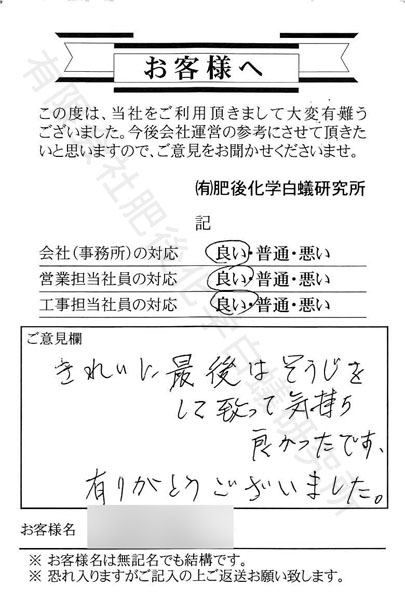 お客様へ
この度は、当社をご利用頂きまして大変有難う
ございました。今後会社運営の参考にさせて頂きた
いと思いますので、ご意見をお聞かせくださいませ。
㈲肥後化学白蟻研究所
記
会社(事務所)の対応 良い・普通・悪い
営業担当社員の対応 良い・普通・悪い
工事担当社員の対応 良い・普通・悪い
ご意見欄
きれいに最後はそうじを
して致って気持ち
良かったです、
有りがとうございました。
お客様名
※ お客様名は無記名でも結構です。
※ 恐れ入りますがご記入の上ご返送お願い致します。
有限会社肥後化学白蟻研究所